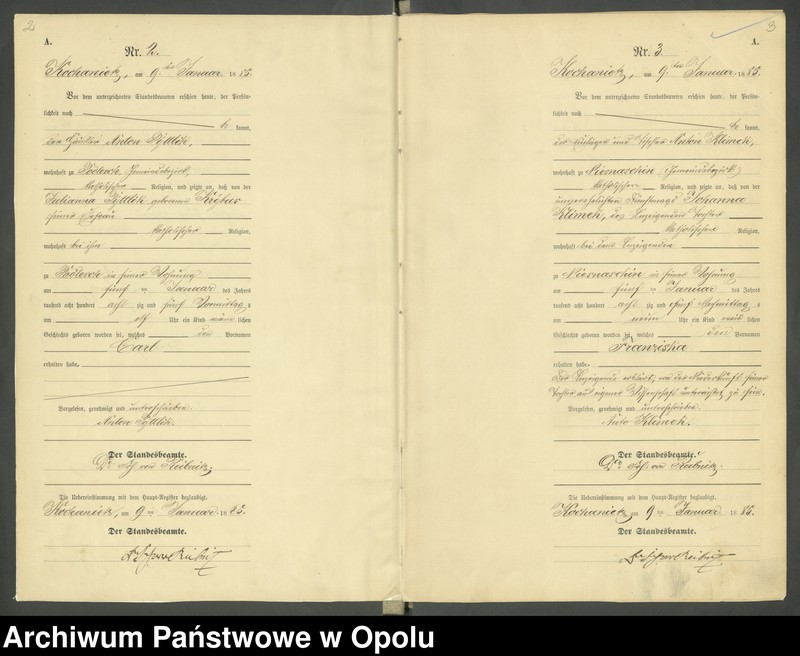 2
A.
Nr. 2.
Kochanietz, am 9. ten Januar 1885.
Vor dem unterzeichneten Standesbeamten erschien heute, der Persön-
lichkeit nach
be kannt,
der Häusler Anton
wohnhaft zu Gemeindebezirk,
katholischer Religion, und zeigte an, daß von der
Julianna geborene
seiner Ehefrau
katholischer Religion,
wohnhaft bei ihm
zu in seiner Wohnung
am fünf ten Januar des Jahres
tausend acht hundert acht zig und fünf Vormittag s
um elf Uhr ein Kind männ lichen
Geschlechts geboren worden sei, welches den Vornamen
Carl
erhalten habe.
Vorgelesen, genehmigt und unterschrieben
Anton
Der Standesbeamte.
Dr. von Reibnitz.
Die Uebereinstimmung mit dem Haupt-Register beglaubigt.
Kochanietz, am 9 ten Januar 1885.
Der Standesbeamte.
3
A.
Nr. 3.
Kochanietz, am 9. ten Januar 1885.
Vor dem unterzeichneten Standesbeamten erschien heute, der Persön-
lichkeit nach
be kannt,
der und Anton Klimek,
wohnhaft zu Niesnaschin Gemeindebezirk,
katholischer Religion, und zeigte an, daß von der
unverehelichten Johanna
Klimek, des Anzeigenden Tochter
katholischer Religion,
wohnhaft bei dem Anzeigenden
zu Niesnaschin in seiner Wohnung
am fünf ten Januar des Jahres
tausend acht hundert acht zig und fünf Nachmittag s
um neun Uhr ein Kind weib lichen
Geschlechts geboren worden sei, welches den Vornamen
Franziska
erhalten habe.
Der Anzeigende erklärt, von der Niederkunft seiner
Tochter aus eigener Wissenschaft unterrichtet zu sein.
Vorgelesen, genehmigt und unterschrieben
Klimek.
Der Standesbeamte.
Dr. von Reibnitz.
Die Uebereinstimmung mit dem Haupt-Register beglaubigt.
Kochanietz, am 9 ten Januar 1885.
Der Standesbeamte.
Archiwum Państwowe w Opolu